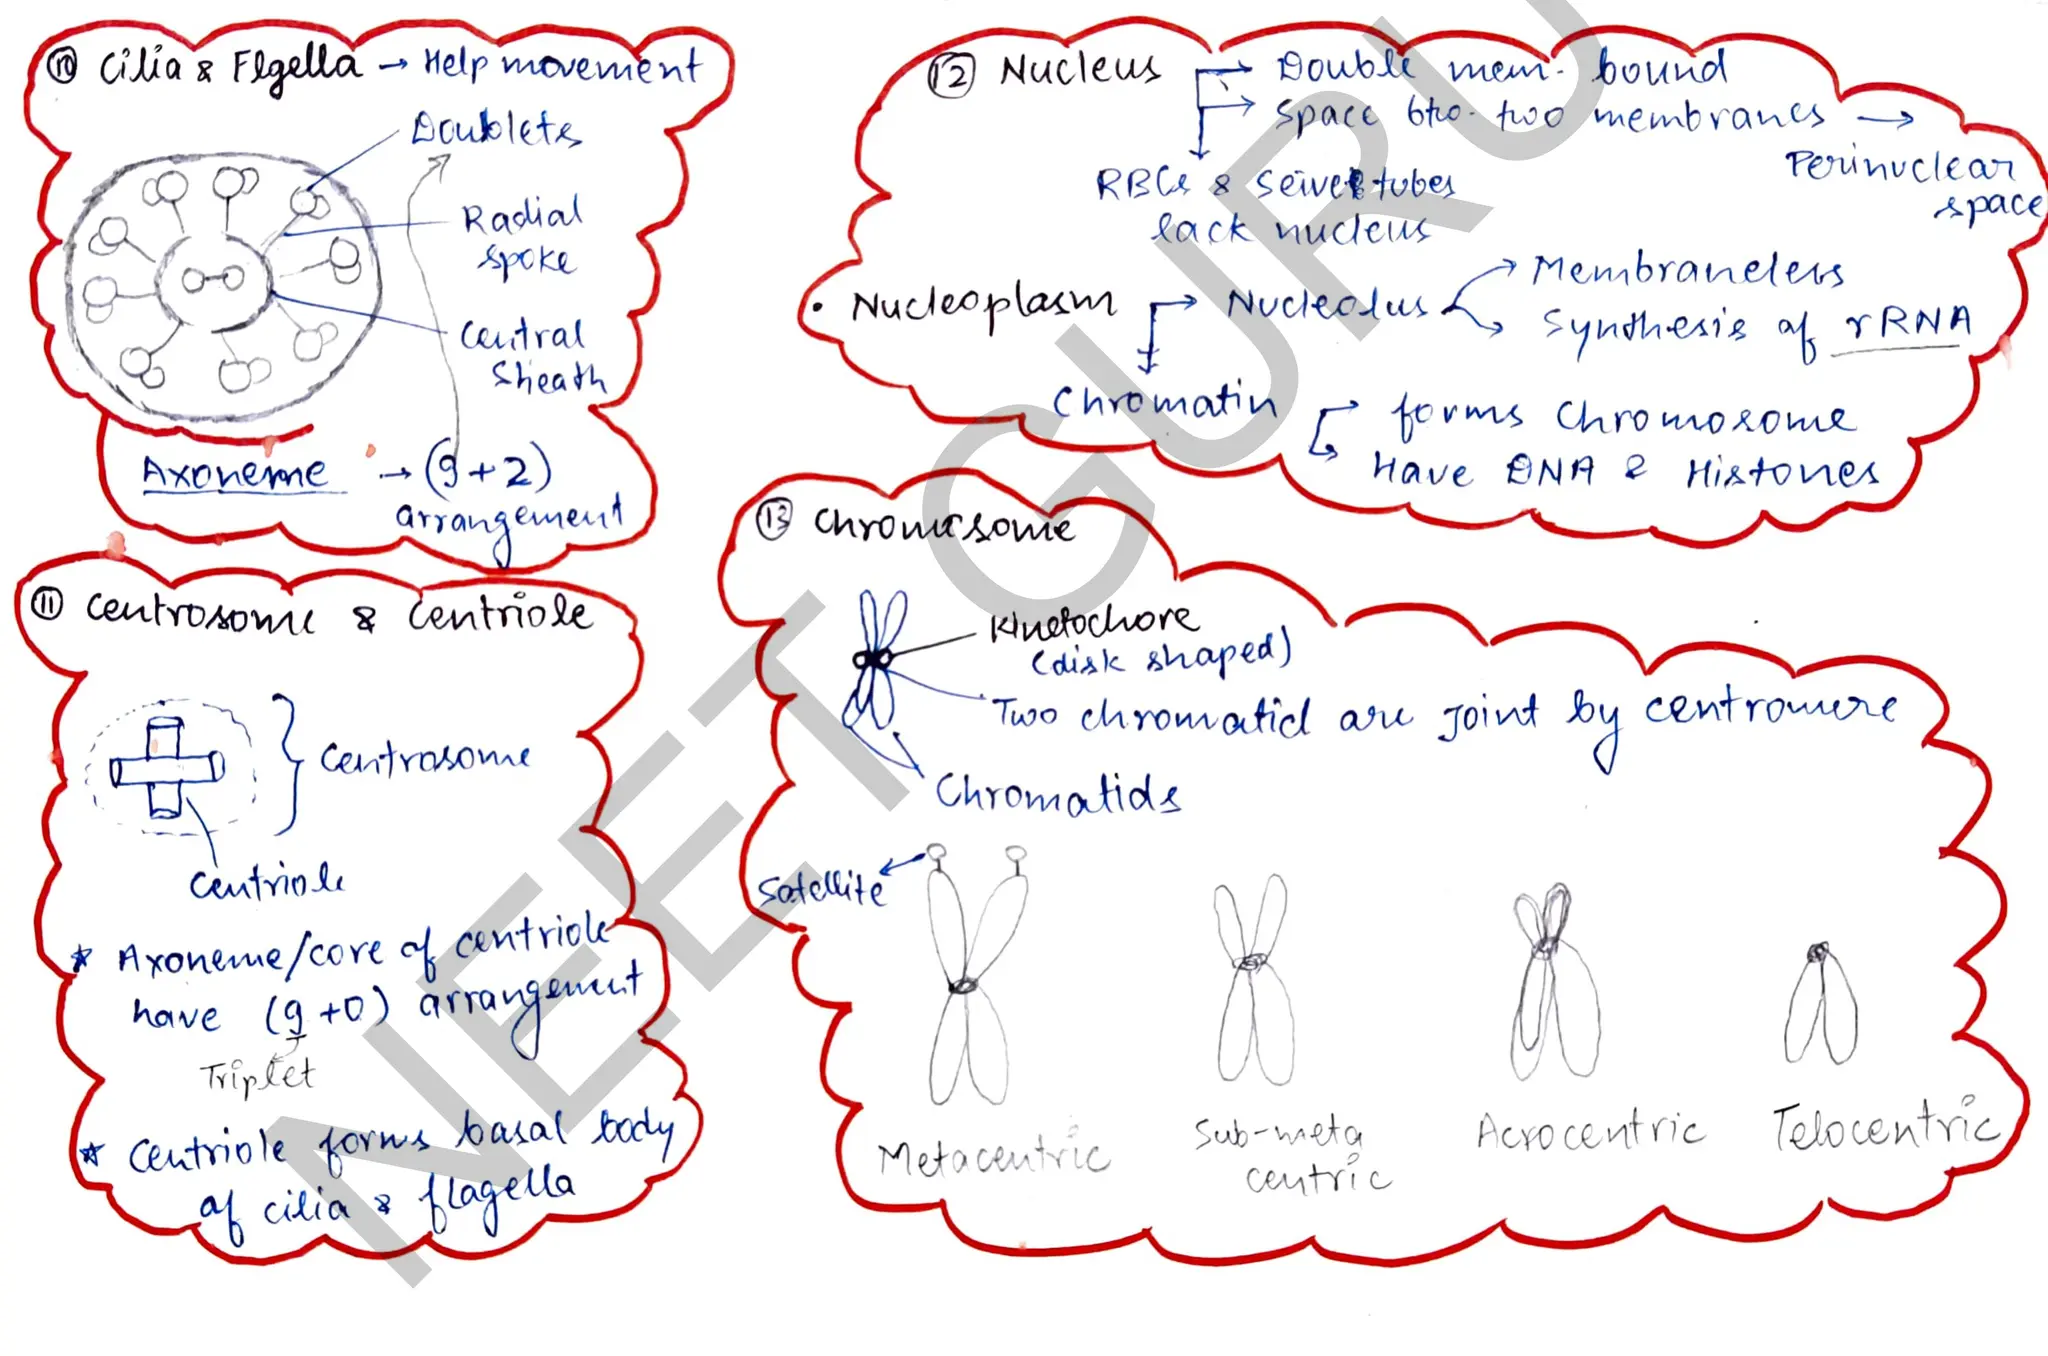 ⑩ Cilia & Flgella → Help movement
Doublets
Radial
spoke
Central
Sheath
Axoneme → (9+2)
arrangement
⑪ Centrosome & Centriole
Centrosome
Centriole
* Axoneme/core of centriole
have (9+0) arrangement
Triplet
* Centriole forms basal body
of cilia & flagella
⑫ Nucleus → Double mem. bound
→ Space btw. two membranes →
Perinuclear
space
RBCs & Seive tubes
lack nucleus
• Nucleoplasm → Nucleolus → Membraneless
→ Synthesis of rRNA
Chromatin → forms Chromosome
→ Have DNA & Histones
⑬ Chromosome
Kinetochore
(disk shaped)
Two chromatid are Joint by centromere
Chromatids
Satellite
Metacentric
Sub-meta
centric
Acrocentric
Telocentric
NEET GURU